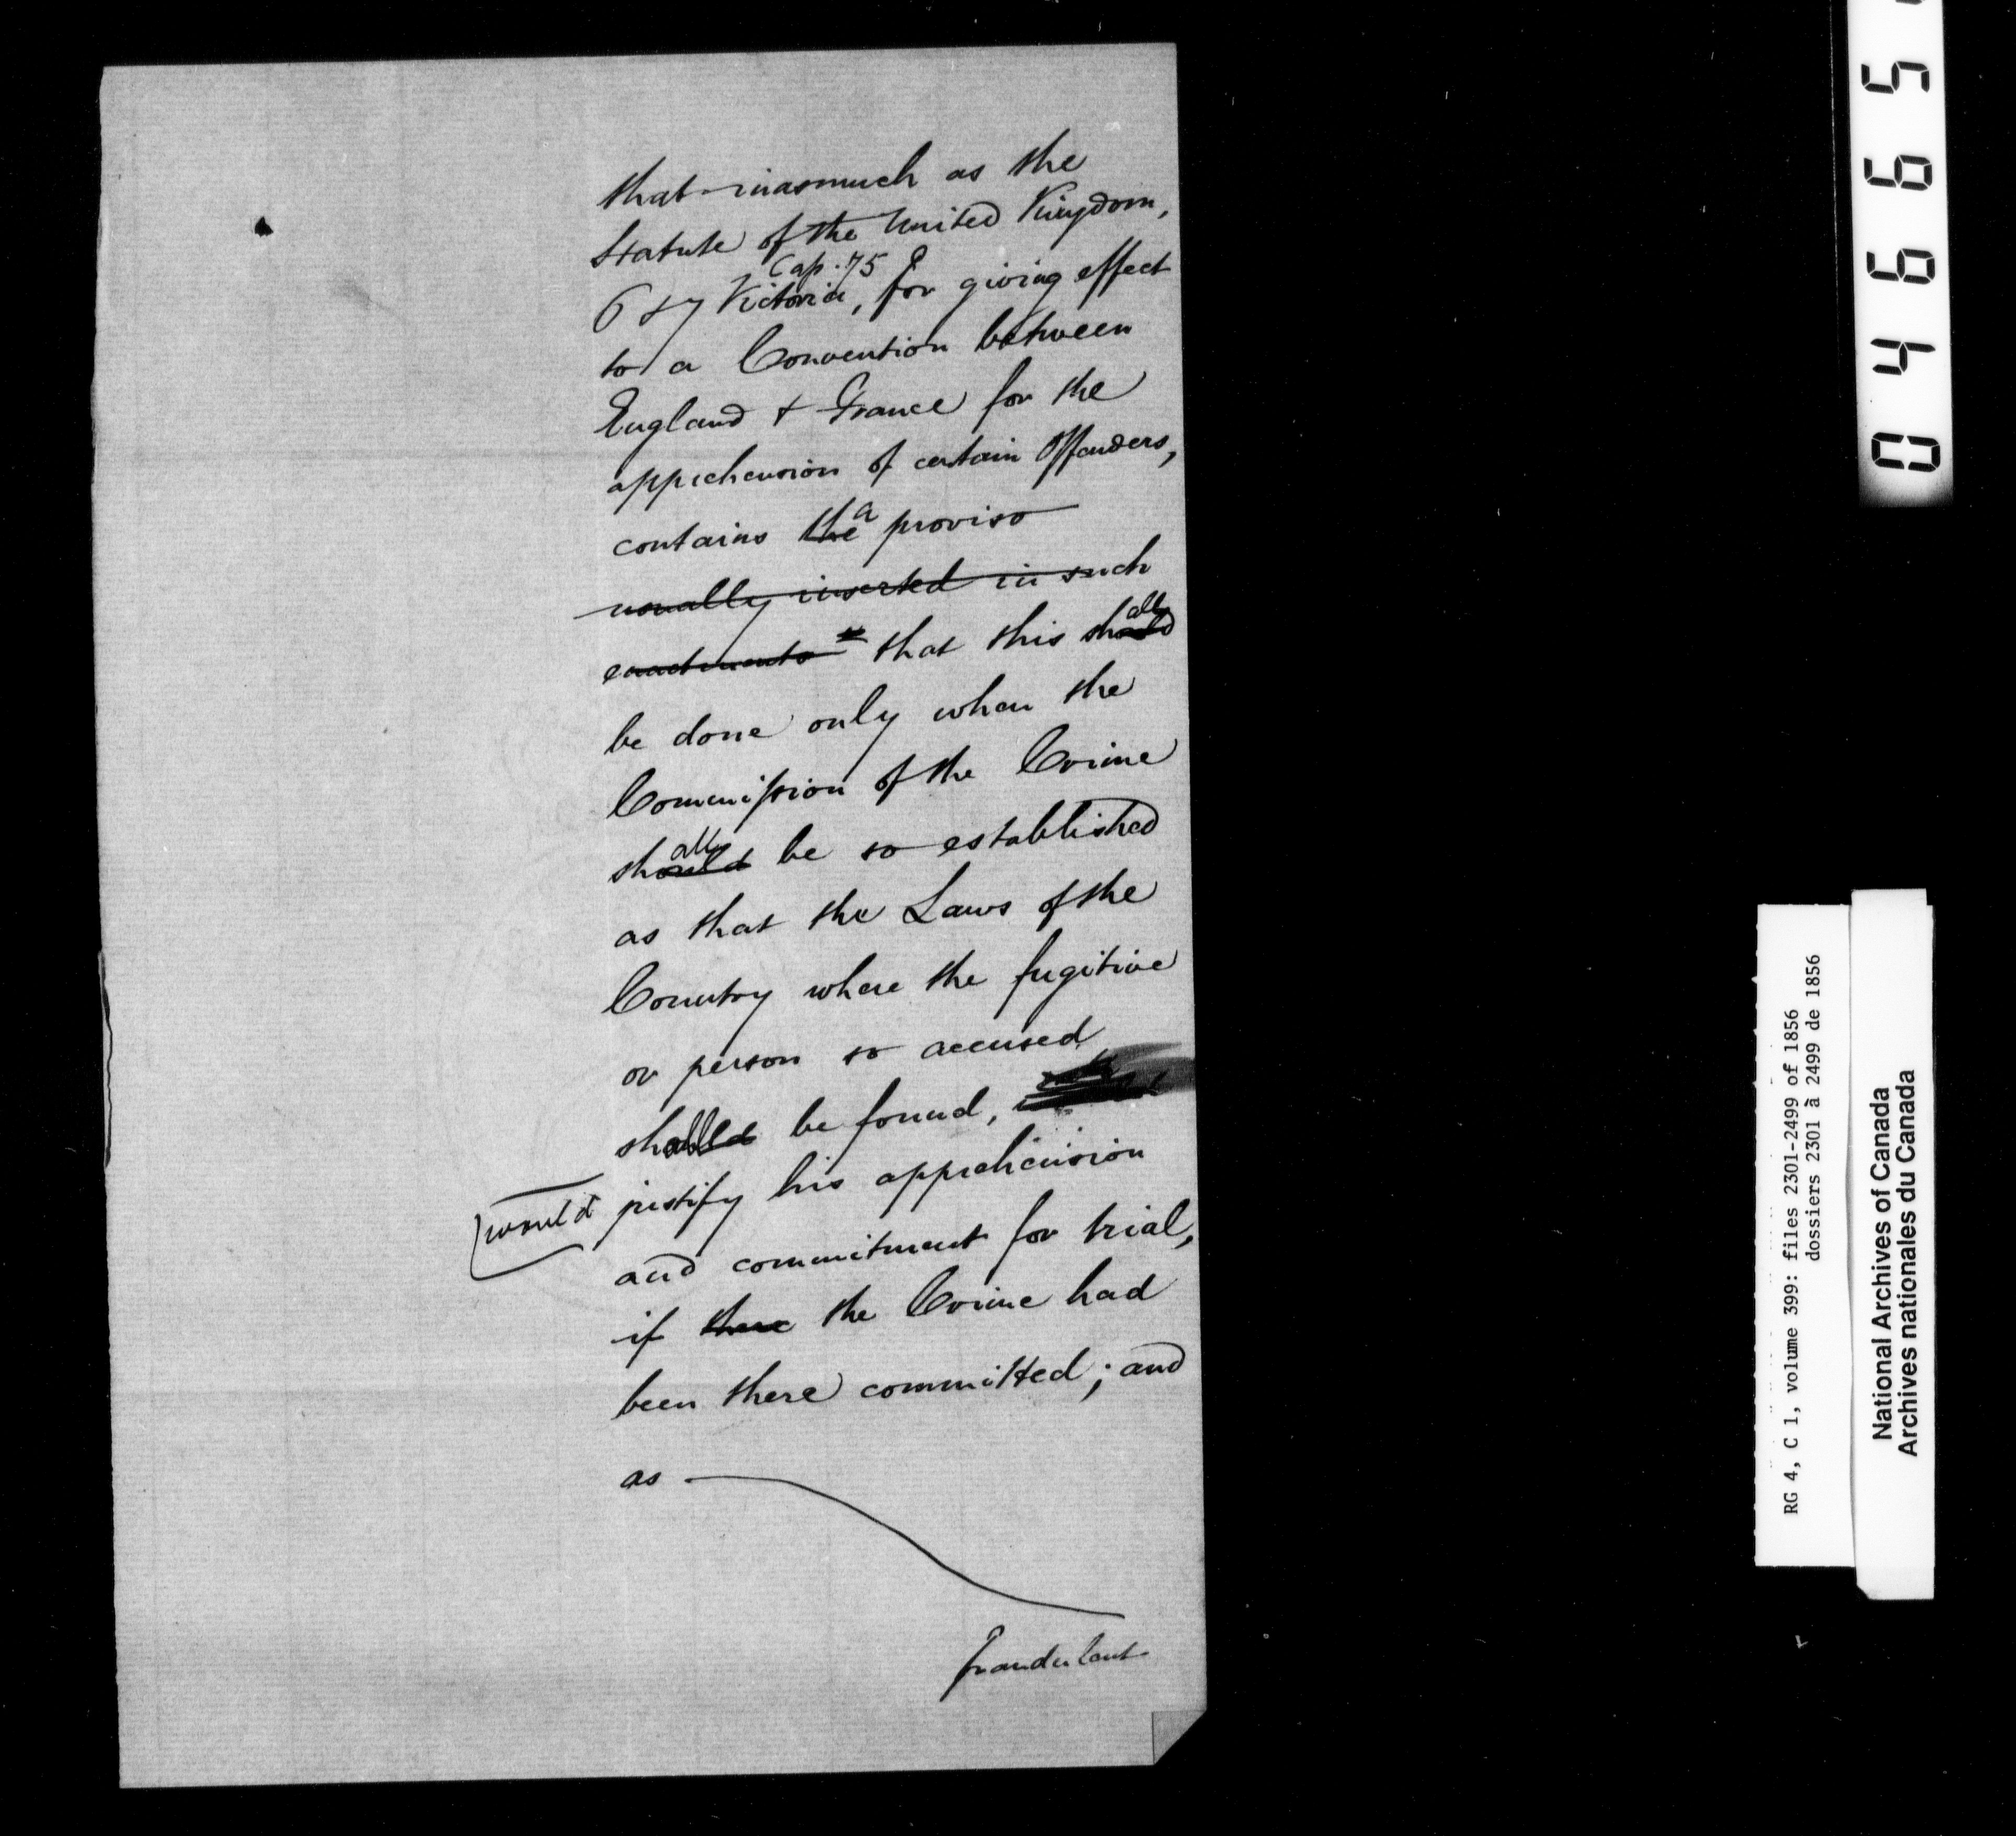 that inasmuch as the
Statute of the United Kingdom,
Cap. 75
6 & 7 Victoria, for giving effect
to a Convention between
England & France for the
apprehension of certain Offenders,
contains the a proviso
usually inserted in such
enactments that this should all
be done only when the
Commission of the Crime
should all be so established
as that the Laws of the
Country where the fugitive
or person so accused
shall be found,
would justify his apprehension
and commitment for trial,
if there the Crime had
been there committed; and
as
fraudulent
04665
RG 4, C 1, volume 399: files 2301-2499 of 1856
dossiers 2301 à 2499 de 1856
National Archives of Canada
Archives nationales du Canada